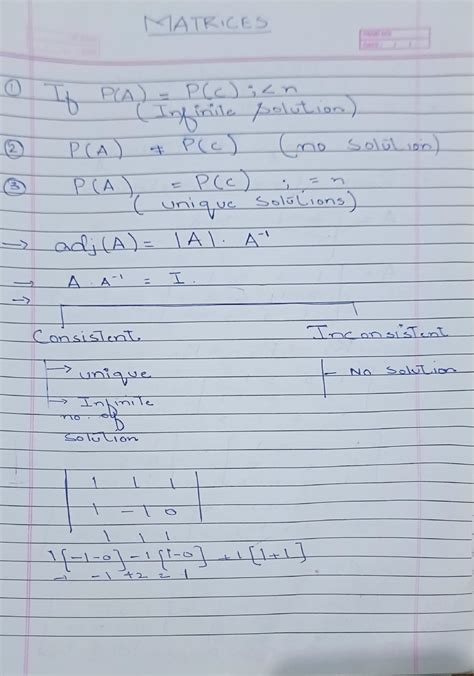 MATRICES
① If P(A) = P(C) ; < n
(Infinite solution)
② P(A) ≠ P(C) (no solution)
③ P(A) = P(C) ; = n
(unique solutions)
→ adj(A) = |A| . A⁻¹
→ A . A⁻¹ = I.
→
Consistent Inconsistent
→ unique - No Solution
→ Infinite
no. of
solution
| 1 1 1 |
| 1 -1 0 |
1 1 1
1[-1-0] -1[1-0] +1[1+1]
-1 -1 +2 = 1